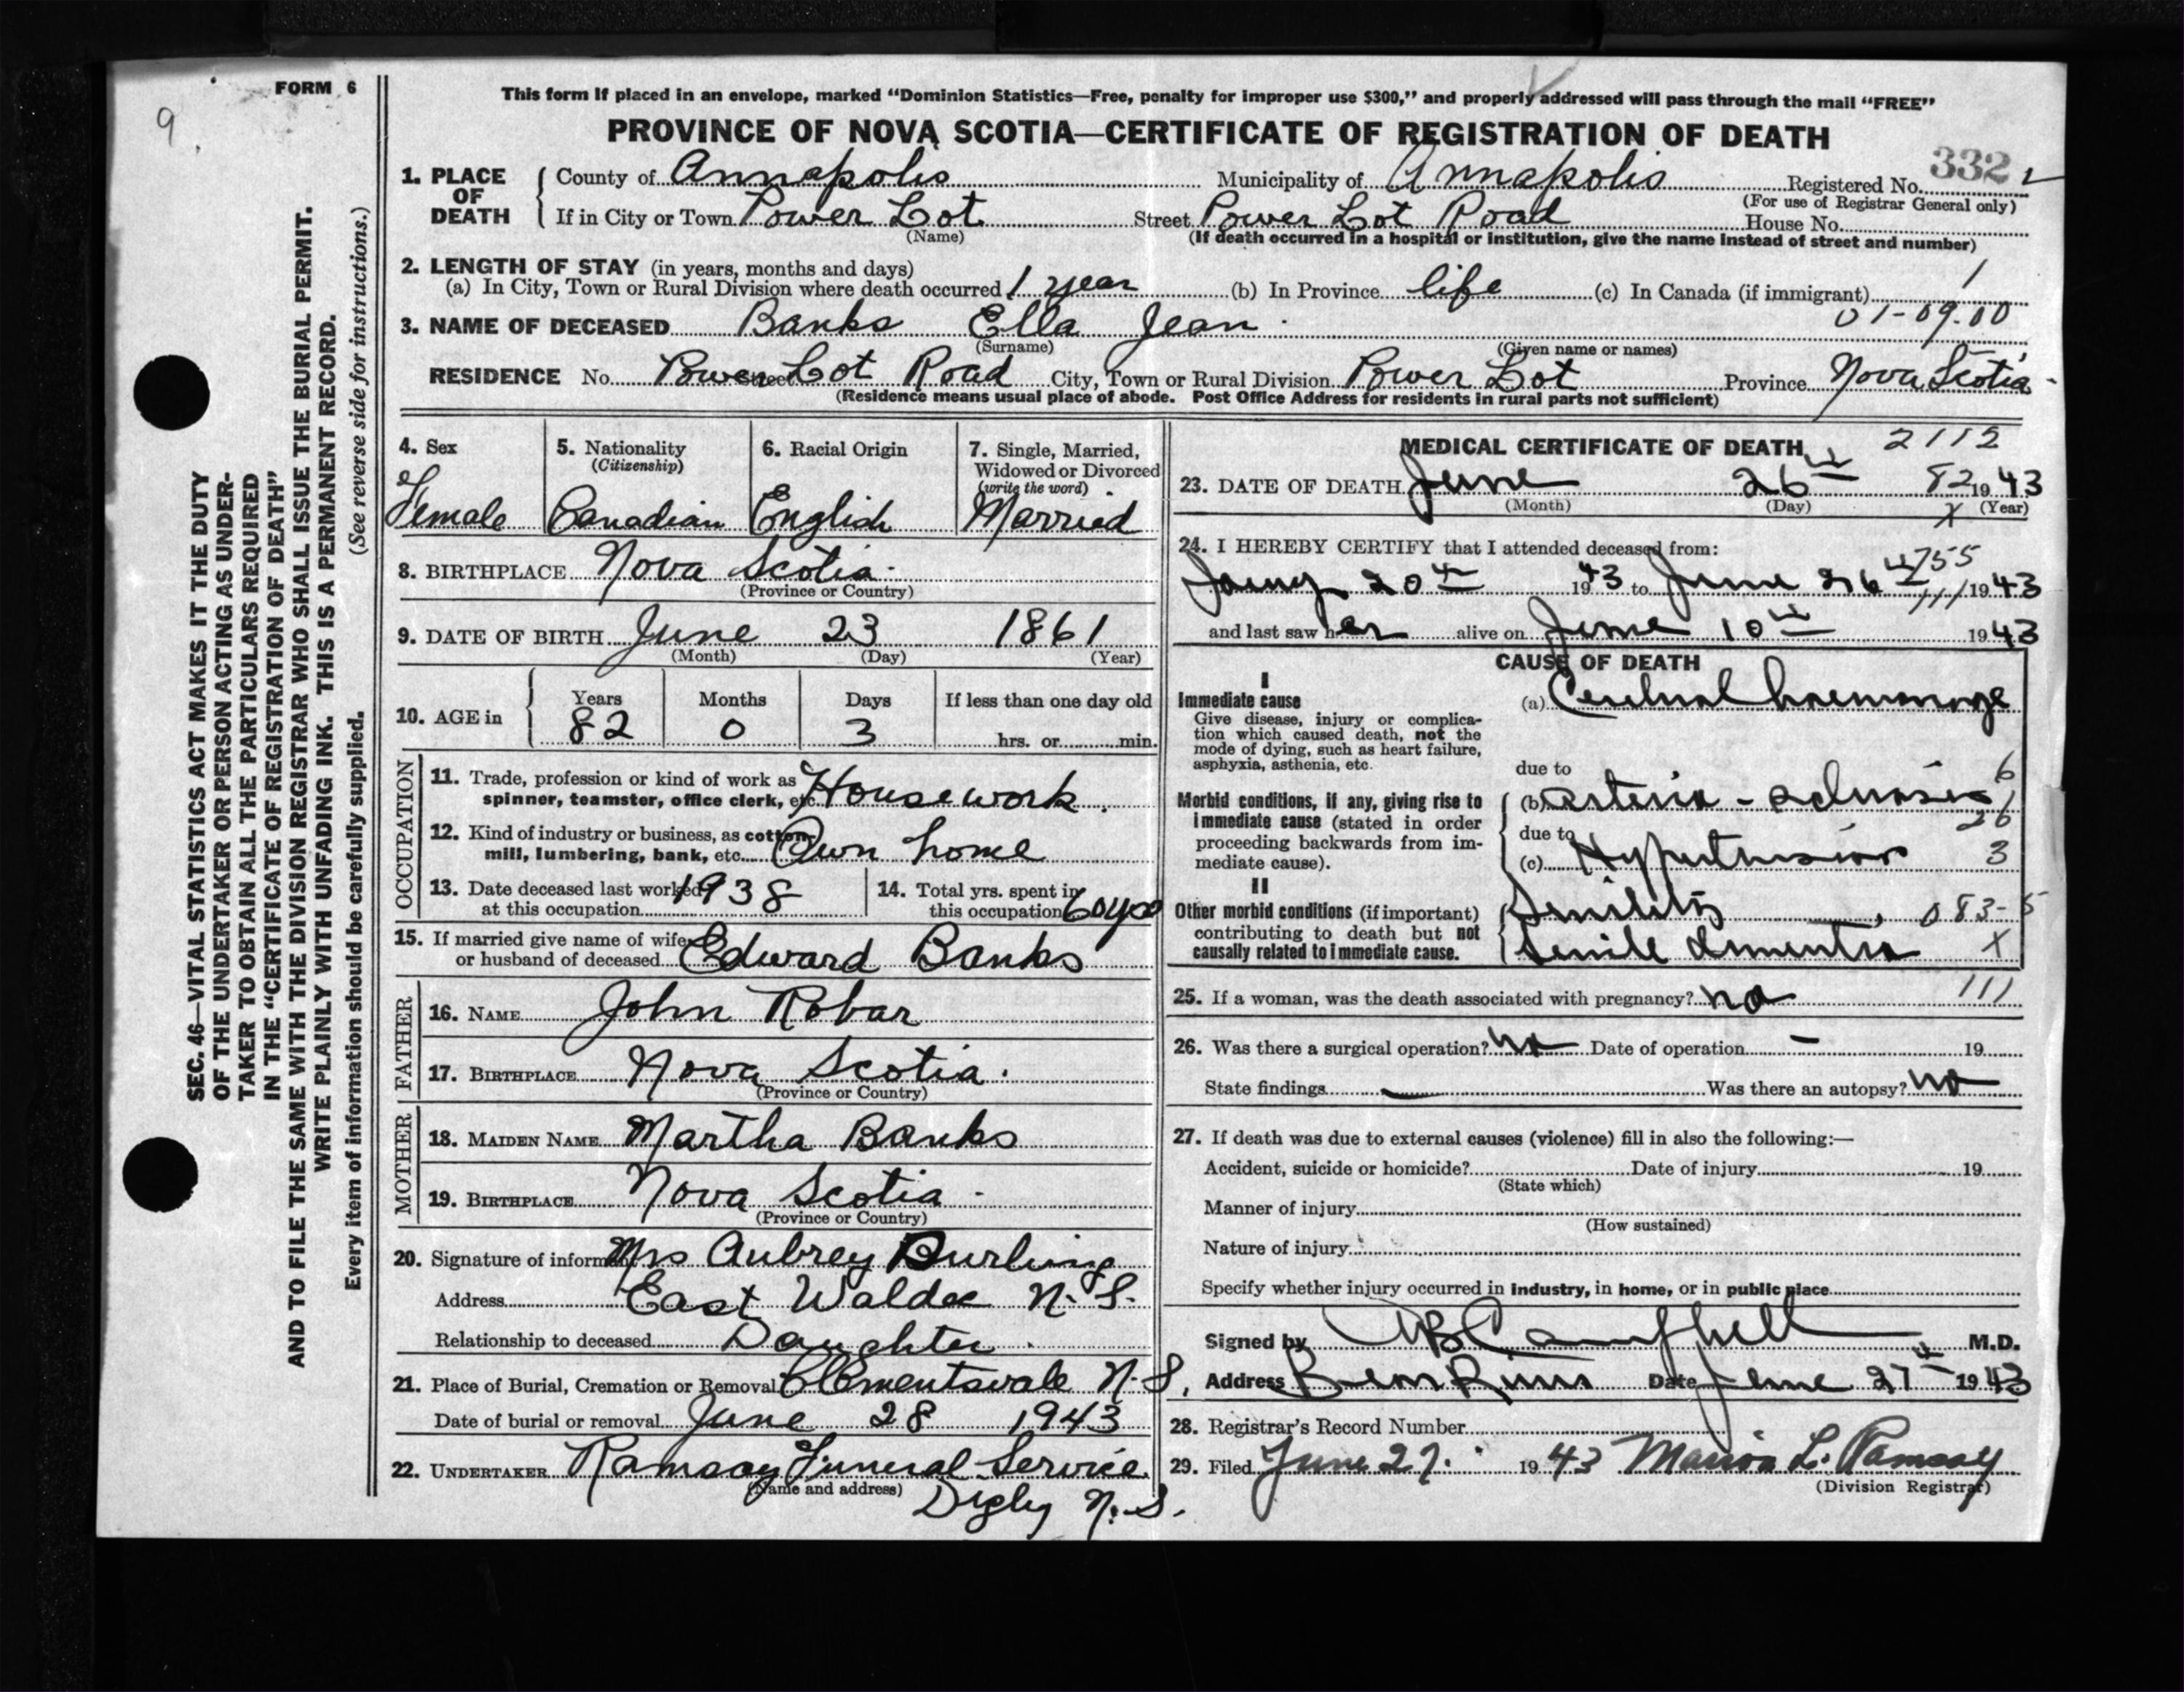 FORM 6
9
This form if placed in an envelope, marked “Dominion Statistics—Free, penalty for improper use $300,” and properly addressed will pass through the mail “FREE”
PROVINCE OF NOVA SCOTIA—CERTIFICATE OF REGISTRATION OF DEATH
332
1. PLACE OF DEATH
County of Annapolis Municipality of Annapolis Registered No.
(For use of Registrar General only)
If in City or Town Power Lot Street Power Lot Road House No.
(Name) (If death occurred in a hospital or institution, give the name instead of street and number)
2. LENGTH OF STAY (in years, months and days)
(a) In City, Town or Rural Division where death occurred 1 year (b) In Province life (c) In Canada (if immigrant)
1
01-09.00
3. NAME OF DECEASED Banks Ella Jean
(Surname) (Given name or names)
RESIDENCE No. Power Lot Road Street City, Town or Rural Division Power Lot Province Nova Scotia
(Residence means usual place of abode. Post Office Address for residents in rural parts not sufficient)
4. Sex Female
5. Nationality (Citizenship) Canadian
6. Racial Origin English
7. Single, Married, Widowed or Divorced (write the word) Married
8. BIRTHPLACE Nova Scotia
(Province or Country)
9. DATE OF BIRTH June 23 1861
(Month) (Day) (Year)
10. AGE in Years Months Days If less than one day old
82 0 3 hrs. or min.
OCCUPATION
11. Trade, profession or kind of work as spinner, teamster, office clerk, etc. Housework
12. Kind of industry or business, as cotton mill, lumbering, bank, etc. Own home
13. Date deceased last worked at this occupation 1938
14. Total yrs. spent in this occupation 60 yrs
15. If married give name of wife or husband of deceased Edward Banks
FATHER
16. NAME John Robar
17. BIRTHPLACE Nova Scotia
(Province or Country)
MOTHER
18. MAIDEN NAME Martha Banks
19. BIRTHPLACE Nova Scotia
(Province or Country)
20. Signature of informant Mrs Aubrey Burling
Address East Waldec N.S.
Relationship to deceased Daughter
21. Place of Burial, Cremation or Removal Clementsvale N.S.
Date of burial or removal June 28 1943
22. UNDERTAKER Ramsay Funeral Service
(Name and address) Digby N.S.
MEDICAL CERTIFICATE OF DEATH 2112
23. DATE OF DEATH June 26th 82 1943
(Month) (Day) X (Year)
24. I HEREBY CERTIFY that I attended deceased from:
755
20th 1943 to June 26th 1943
111
and last saw her alive on June 10th 1943
CAUSE OF DEATH
I
Immediate cause
Give disease, injury or complication which caused death, not the mode of dying, such as heart failure, asphyxia, asthenia, etc.
(a) Cerebral haemorrage
due to
Morbid conditions, if any, giving rise to immediate cause (stated in order proceeding backwards from immediate cause).
(b) Arterio-sclerosis
6
due to
(c) Hypertension 3
II
Other morbid conditions (if important) contributing to death but not causally related to immediate cause.
Senility 083-5
Senile dementia X
25. If a woman, was the death associated with pregnancy? no 111
26. Was there a surgical operation? no Date of operation – 19
State findings — Was there an autopsy? no
27. If death was due to external causes (violence) fill in also the following:—
Accident, suicide or homicide? Date of injury 19
(State which)
Manner of injury
(How sustained)
Nature of injury
Specify whether injury occurred in industry, in home, or in public place
Signed by Campbell M.D.
Address Bear River Date June 27th 1943
28. Registrar's Record Number
29. Filed June 27. 1943 Marion L. Ramsay
(Division Registrar)
SEC. 46—VITAL STATISTICS ACT MAKES IT THE DUTY
OF THE UNDERTAKER OR PERSON ACTING AS UNDER-
TAKER TO OBTAIN ALL THE PARTICULARS REQUIRED
IN THE “CERTIFICATE OF REGISTRATION OF DEATH”
AND TO FILE THE SAME WITH THE DIVISION REGISTRAR WHO SHALL ISSUE THE BURIAL PERMIT.
WRITE PLAINLY WITH UNFADING INK. THIS IS A PERMANENT RECORD.
Every item of information should be carefully supplied. (See reverse side for instructions.)